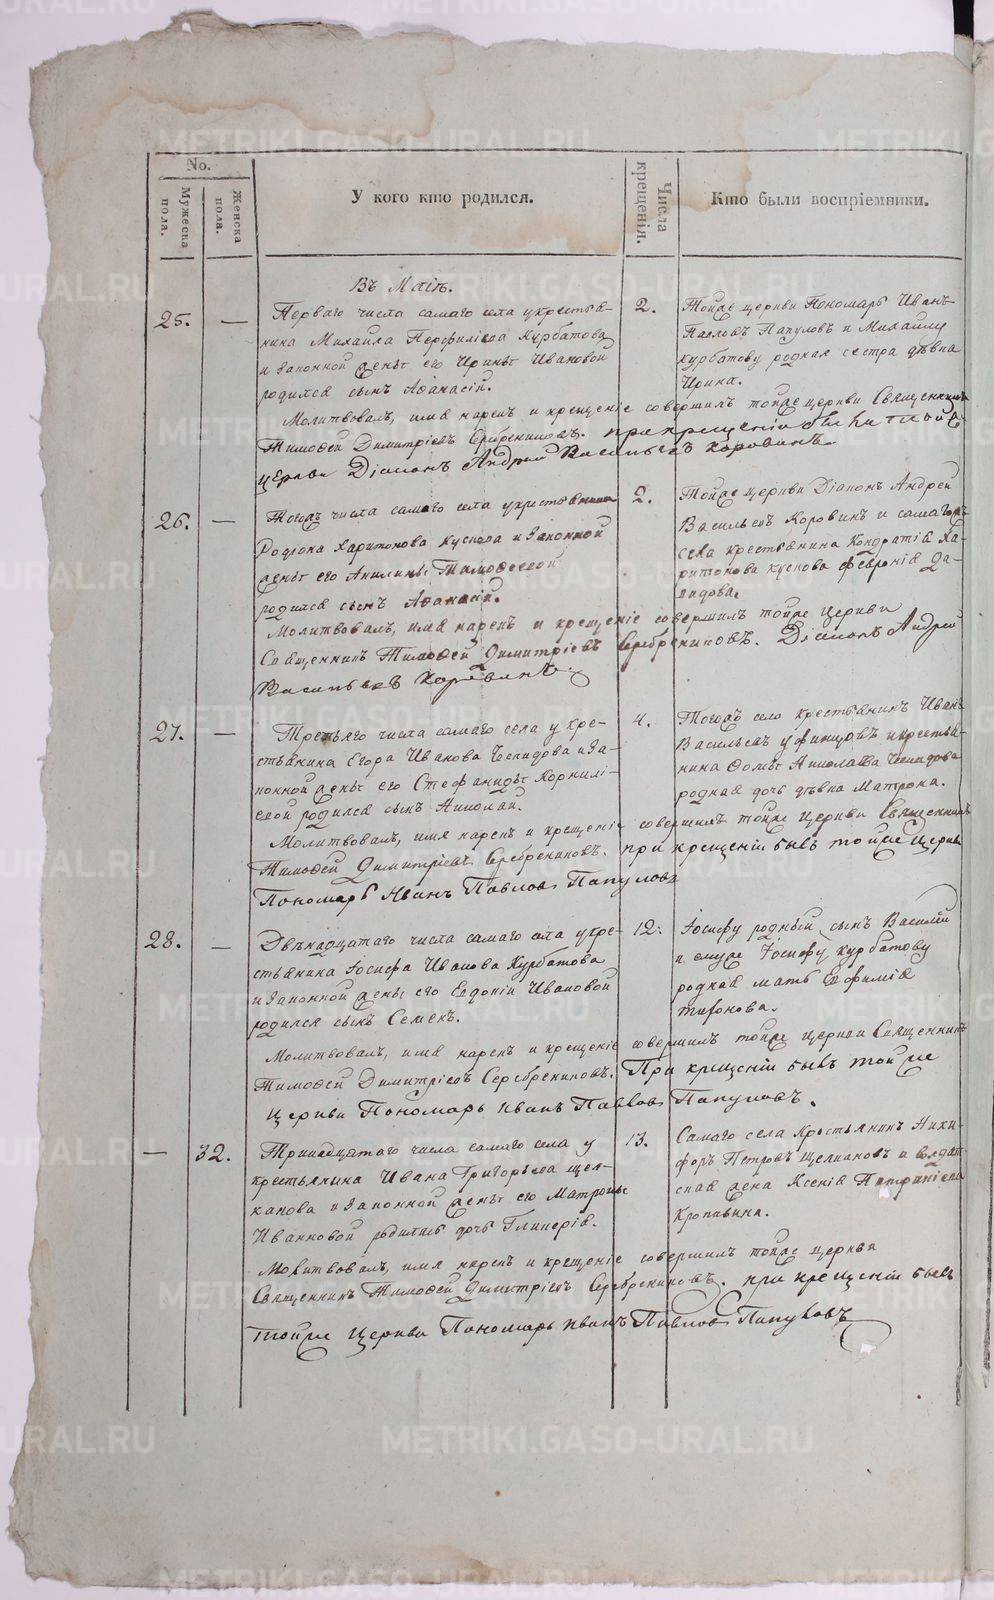 No.
Мужеска пола.
Женска пола.
У кого кто родился.
Числа крещенія.
Кто были воспріемники.
Въ Маіѣ.
25. —
Перваго числа самаго села у крестья-
нина Михаила Перфилієва Курбатова
и законной жены его Ирины Ивановой
родился сынъ Аѳанасій.
2.
Тойже церкви Пономарь Иванъ
Павловъ Папуловъ и Михаилу
Курбатову родная сестра дѣвка
Ирина.
Молитвовалъ, имя нарекъ и крещеніе совершилъ тойже церкви Священникъ
Тимоѳей Димитріевъ Серебрениковъ. При крещеніи былъ тойже
церкви Діаконъ Андрей Васильевъ Коровинъ
26. —
Тогожъ числа самаго села у крестьянина
Родіона Харитонова Кускова и законной
жены его Акилины Тимоѳеевой
родился сынъ Аѳанасій.
2.
Тойже церкви Діаконъ Андрей
Васильевъ Коровинъ и самагожъ
села крестьянина Кондратія Ха-
ритонова Кускова Февронія Да-
видова.
Молитвовалъ, имя нарекъ и крещеніе совершилъ тойже церкви
Священникъ Тимоѳей Димитріевъ Серебрениковъ. Діаконъ Андрей
Васильевъ Коровинъ.
27. —
Третьяго числа самаго села у кре-
стьянина Егора Иванова и за-
конной жены его Стефаниды Корнилі-
евой родился сынъ Николай.
4.
Тогожъ села крестьянинъ Иванъ
Васильевъ Уфинцовъ и крестья-
нина Ѳомы
родная дочь дѣвка Матрона.
Молитвовалъ, имя нарекъ и крещеніе совершилъ тойже церкви Священникъ
Тимоѳей Димитріевъ Серебрениковъ. При крещеніи бывъ тойже церкви
Пономарь Иванъ Павловъ Папуловъ
28. —
Двѣнадцатаго числа самаго села у кре-
стьянина Іосифа Иванова Курбатова
и законной жены его Евдокіи Ивановой
родился сынъ Семенъ.
12.
Іосифу родный сынъ Василій
и емуже Іосифу Курбатову
родная мать Евфимія
Молитвовалъ, имя нарекъ и крещеніе совершилъ тойже церкви Священникъ
Тимоѳей Димитріевъ Серебрениковъ. При крещеніи бывъ тойже
церкви Пономарь Иванъ Павловъ Папуловъ.
— 32.
Тринадцатаго числа самаго села у
крестьянина Ивана Григорьева Щел-
канова и законной жены его Матроны
Ивановой родилась дочь Гликерія.
13.
Самаго села Крестьянинъ Ники-
форъ Петровъ Щелкановъ и солдат-
ская жена Ксенія
Кропивина.
Молитвовалъ, имя нарекъ и крещеніе совершилъ тойже церкви
Священникъ Тимоѳей Димитріевъ Серебрениковъ. При крещеніи бывъ
тойже церкви Пономарь Иванъ Павловъ Папуловъ
METRIKI.GASO-URAL.RU